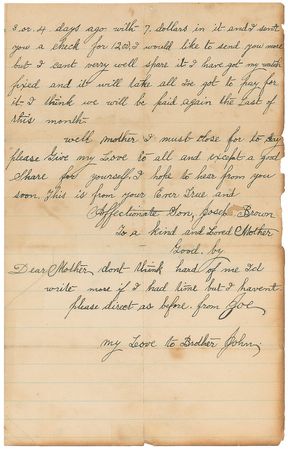 3 or 4 days ago with 7 dollars in it and I sent
you a check for 120, I would like to send you more
but I cant very well spare it I have got my watch
fixed and it will take all Ive got to pay for
it I think we will be paid again the Last of
this month.
well mother I must close for to day
please Give my Love to all and except a good
Share for yourself, I hope to hear from you
soon, This is from your Ever True and
Affectionate Son, Joseph Brown
To a kind and Loved Mother
Good. by
Dear Mother dont think hard of me I'd
write more if I had time but I havent
please direct as before. from Joe
my Love to Brother John,